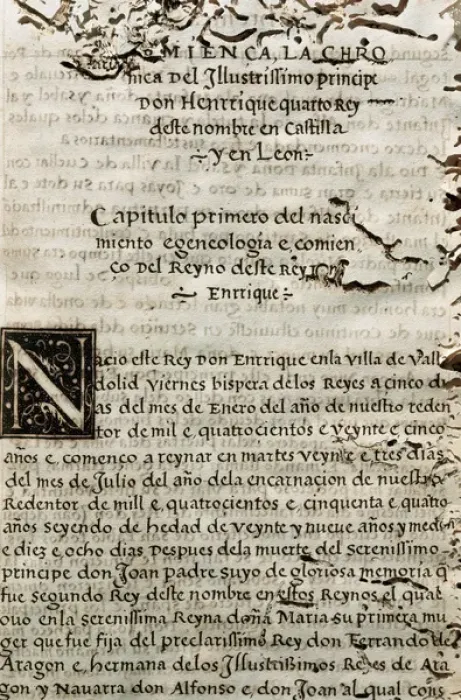 OMIENCA, LA CHRO
nica Del Illustrissimo principe
Don Henrrique quarto Rey
deste nombre en Castilla
y en Leon:
Capitulo primero del nasci
miento e geneologia e, comien
co Del Reyno deste Rey Don
Enrrique:
Nacio este Rey Don Enrrique en la villa de Valla
dolid viernes bispera de los Reyes a cinco di
as del mes de Enero del año de nuestro reden
tor de mil e, quatrocientos e veynte e cinco
años e comenco a reynar en martes veynte e tres dias
del mes de Julio del año de la encarnacion de nuestro
Redentor de mill e, quatrocientos e, cinquenta e quatro
años seyendo de hedad de veynte y nueve años y medio
e diez e, ocho dias Despues de la muerte del serenissimo
principe don Joan padre suyo de gloriosa memoria q
fue segundo Rey deste nombre en estos Reynos el qual
ouo en la serenissima Reyna doña Maria su primera mu
ger que fue fija del preclarissimo Rey don Ferrando de
Aragon e, hermana de los Illustrissimos Reyes de Ara
gon y Navarra don Alfonso e, don Joan al qual